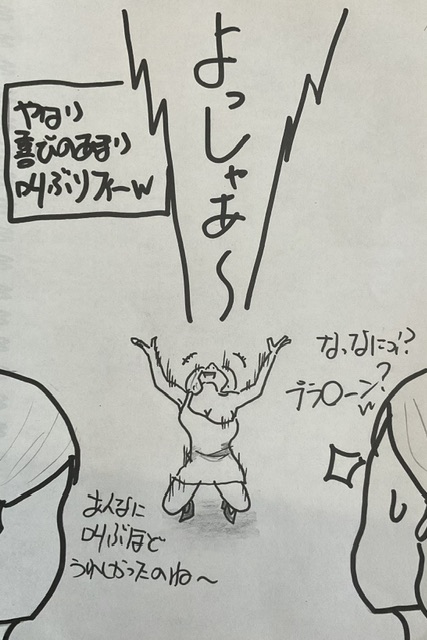 よっしゃあ〜
やはり
喜びのあまり
叫ぶリフィーw
なっなにっ!?
?
プラ〇ーン
w
あんなに
叫ぶほど
うれしかったのね〜